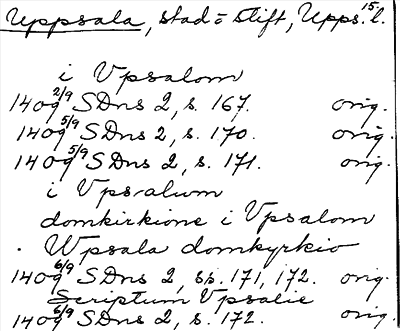 Uppsala, stad o Stift, Upps. l. 15
i Vpsalom
1409 2/9 SDns 2, s. 167. orig.
1409 5/9 SDns 2, s. 170. orig.
1409 5/9 SDns 2, s. 171. orig.
i Vpsalum
domkirkione i Vpsalom
Wpsala domkyrkio
1409 6/9 SDns 2, ss. 171, 172. orig.
Scriptum Vpsalie
1409 6/9 SDns 2, s. 172. orig.